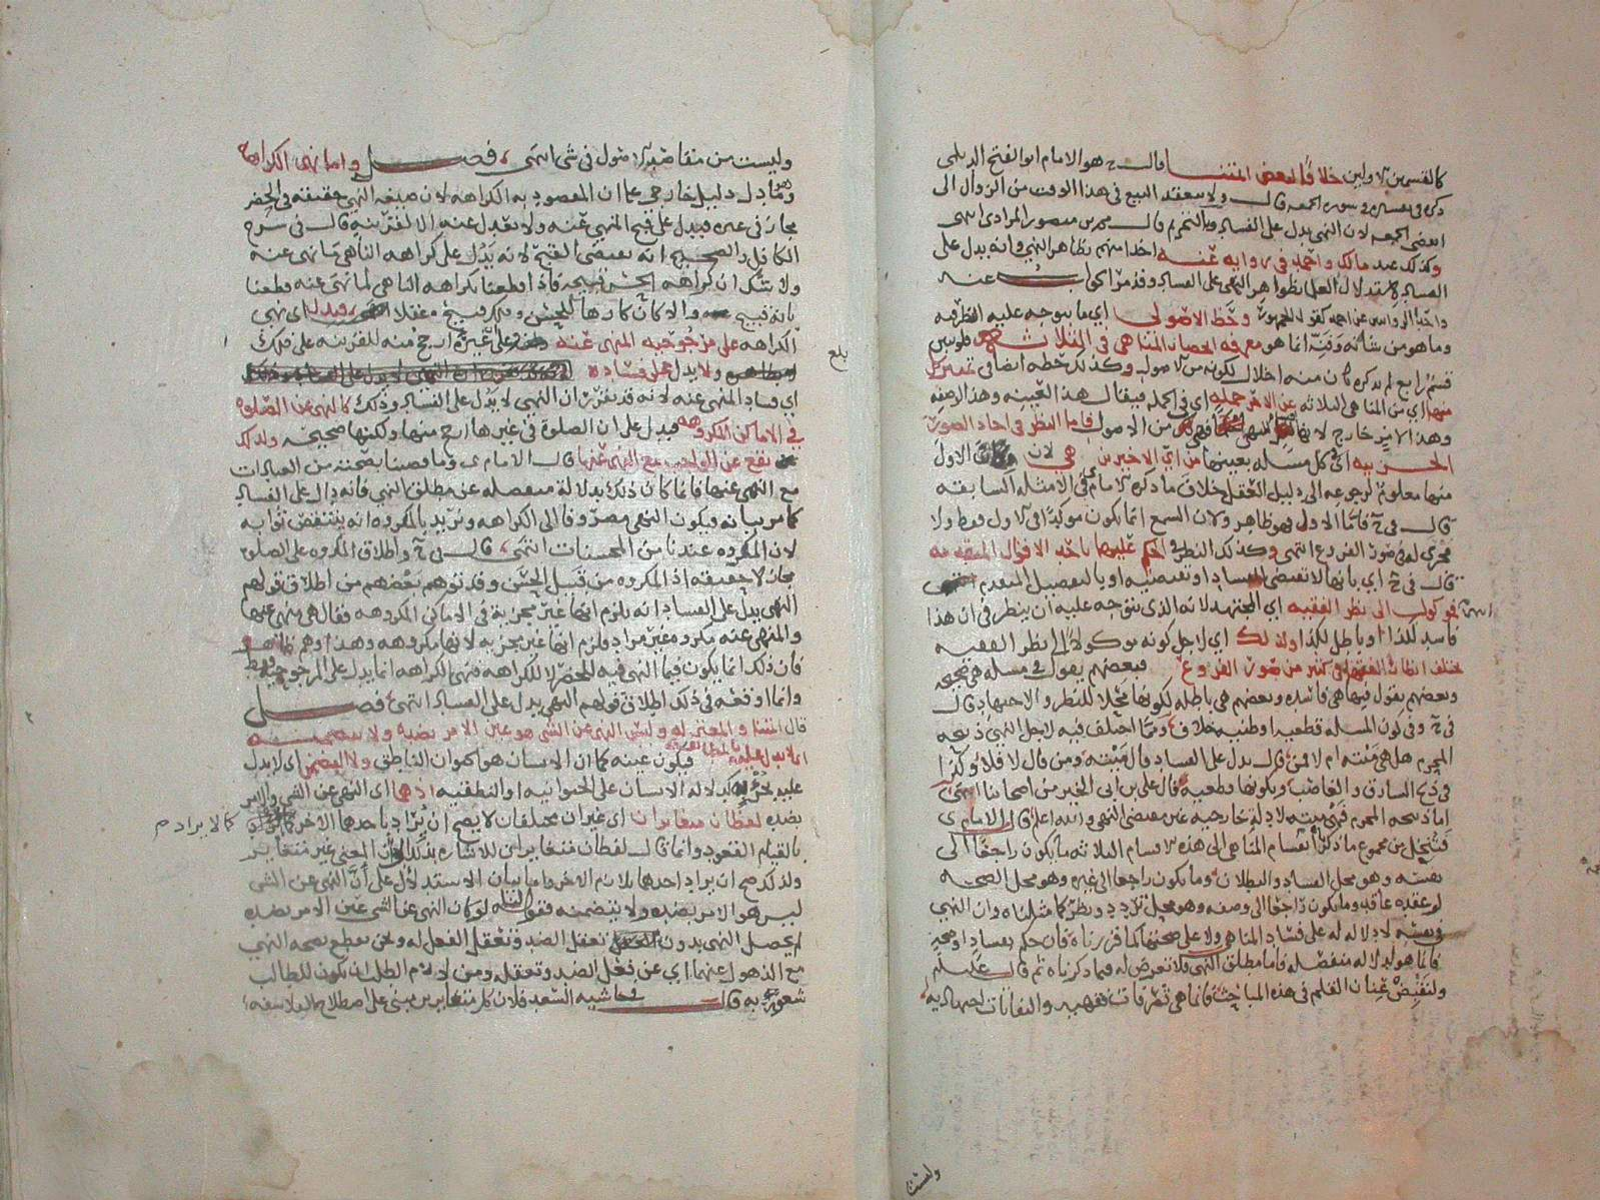 كالقسمين الاولين خلافا لبعض ائمتنا قال هو الامام ابو الفتح الديلمي
ذكره في تفسيره في سورة الجمعه قال ولا ينعقد البيع في هذا الوقت من الزوال الى
الجمعه لان النهي يدل على الفساد والتحريم قال محمد بن منصور المرادي انتهى
وكذلك عند مالك واحمد في روايه عنه اخذا منهم بظاهر النهي وانه يدل على
الفساد لاستدلال العلما بظواهر النهي على الفساد وقد مر الجواب عنه
وحظ الاصولي اي ما يتوجه عليه النظر فيه
وما هو من شانه انما هو معرفه انحصار المناهي في الثلاث فلو بين
قسم رابع لم يذكره كان منه اخلال لكونه من الاصول وكذلك حظه ايضا في تمييز كل
منها اي من المناهي الثلاثه عن الاخر جمله اي في الجمله فيقال هذا لعينه وهذا لوصفه
وهذا لامر خارج لانها من الاصول فاما النظر في احاد الصور
اي كل مسئله بعينها من اي الاخيرين هي لان الاول
منها معلوم لرجوعه الى دليل العقل خلاف ما ذكره الامام في الامثله السابقه
قال في فاما الاول فهو ظاهر ولان السمع انما يكون موكدا في الاول فقط ولا
صور الفروع انتهى وكذلك النظر في الحكم عليها باحد الاقوال المتقدمه
قال في اي بانها لا تقتضي الفساد او تقتضيه او بالتفصيل المتقدم
فموكول الى نظر الفقيه اي المجتهد لانه الذي يتوجه عليه ان ينظر في ان هذا
فاسد لكذا او باطل لكذا ولذلك اي لاجل كونه موكولا الى نظر الفقيه
تختلف انظار الفقها في كثير من صور الفروع فبعضهم يقول في مسئله هي صحيحه
وبعضهم يقول فيها هي فاسده وبعضهم هي باطله لكونها محلا للنظر والاجتهاد قال
في وفي كون المسله قطعيه او ظنيه خلاف ومما اختلف فيه لاجل النهي ذبيحه
المحرم هل هي ميته ام لا فمن قال يدل على الفساد قال ميته ومن قال لا فلا وكذا
في ذبح السارق والغاصب وبكونها قطعيه قال علي بن ابي الخير من اصحابنا انتهى
اما ذبيحه المحرم فهي ميته لادله خارجيه غير مقتضى النهي والله اعلم قال الامام ي
فتنخل من مجموع ما ذكرنا انقسام المناهي الى هذه الاقسام الثلاثه ما يكون راجعا الى
نفسه وهو محل الفساد والبطلان وما يكون راجعا الى غيره وهو محل الصحه
وما يكون راجعا الى وصفه وهو محل تردد ونظر كما مثلناه وان النهي
في نفسه لا دلاله له على فساد المناهي ولا على صحتها كما قررناه فان حكم بفساد او صحه
فانما هو لدلاله منفصله فاما مطلق النهي فلا تعرض له فيما ذكرناه ثم قال عليلم
ولنقبض عنان القلم في هذه المباحث فانما هي تصرفات فقهيه والتفاتات اجتهاديه
وليست
وليست من مقاصد الاصول في شي انتهى فصل واما نهي الكراهه
وهو ما دل دليل خارجي على ان المقصود به الكراهه لان صيغه النهي حقيقه في الحظر
مجاز في غيره فيدل على قبح المنهي عنه ولا يعدل عنه الا لقرينه قال في شرح
الكافل والصحيح انه يقتضي القبح لانه يدل على كراهه الناهي ما نهى عنه
ولا شك ان كراهه الحسن قبيحه فاذا قطعنا بكراهه الناهي لما نهى عنه قطعنا
بانه قبيح والا كان كارها للحسن وهو قبيح عقلا فيدل اي نهي
الكراهه على مرجوحيه المنهي عنه وعلى غيره ارجح منه للقرينه على ذلك
ولا يدل على فساده
بلغ
اي فساد المنهي عنه لانه قد تقرر ان النهي لا يدل على الفساد وذلك كالنهي عن الصلوه
في الاماكن المكروهه فيدل على ان الصلوة في غيرها ارجح منها ولكنها صحيحه ولذلك
مع النهي عنها قال الامام ي وما قضينا بصحته من العبادات
مع النهي عنها فانما كان ذلك بدلالة منفصله عن مطلق النهي فانه دال على الفساد
كما مر بيانه ويكون النهي مصروفا الى الكراهه ونريد بالمكروه انه ينتقص ثوابه
لان المكروه عندنا من المحسنات انتهى قال في واطلاق المكروه على الصلوه
مجاز لا حقيقه اذ المكروه من قبيل الحسن وقد توهم بعضهم من اطلاق قولهم
النهي يدل على الفساد انه يلزم انها غير مجزية في الاماكن المكروهه فقال هي منهي عنها
والمنهي عنه مكروه غير مراد فلزم انها غير مجزيه لانها مكروهه وهذا وهم
فان ذلك انما يكون فيما النهي فيه للحظر لا للكراهه فنهي الكراهه انما يدل على المرجوحيه فقط
وانما اوقعه في ذلك اطلاق قولهم النهي يدل على الفساد انتهى فصل
قال ائمتنا والمعتزله وليس النهي عن الشي هو عين الامر بضده ولا يتضمنه
اي لا يدل عليه بالمطابقه فيكون عينه كما ان الانسان هو الحيوان الناطق ولا التضمن اي لا يدل
عليه كدلاله الانسان على الحيوانيه او الناطقيه اذ هما اي النهي عن الشي والامر
بضده لفظان متغايران اي غيران مختلفان لا يصح ان يراد باحدهما الاخر
كما لا يراد م
بالقيام القعود وانما قال لفظان متغايران للاشاره بذلك الى ان المعنى غير متغاير
ولذلك صح ان يراد احدهما بلازم الاخر واما بيان الاستدلال على ان النهي عن الشي
ليس هو الامر بضده ولا يتضمنه فنقول لو كان النهي عن الشي عين الامر بضده
لم يحصل النهي بدون تعقل الضد وتعقل الفعل له ونحن نقطع بصحه النهي
مع الذهول عنهما اي عن فعل الضد وتعقله ومن لازم الطلب ان يكون للطالب
شعور به قال في حاشيه السعد فلان كل متغايرين مبني على اصطلاح الفلاسفه